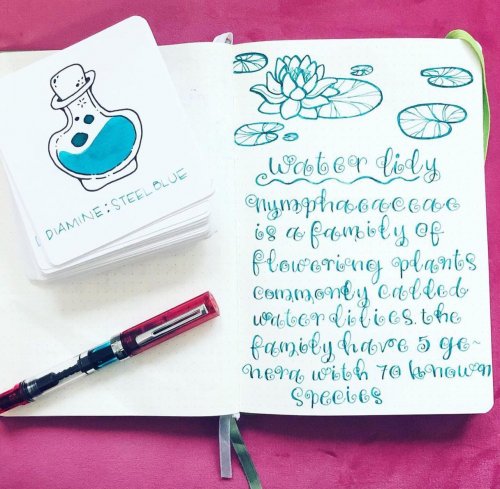 DIAMINE: STEELBLUE
water lily
nymphaeaceae
is a family of
flowering plants
commonly called
waterlilies. the
family have 5 ge-
nera with 70 known
species